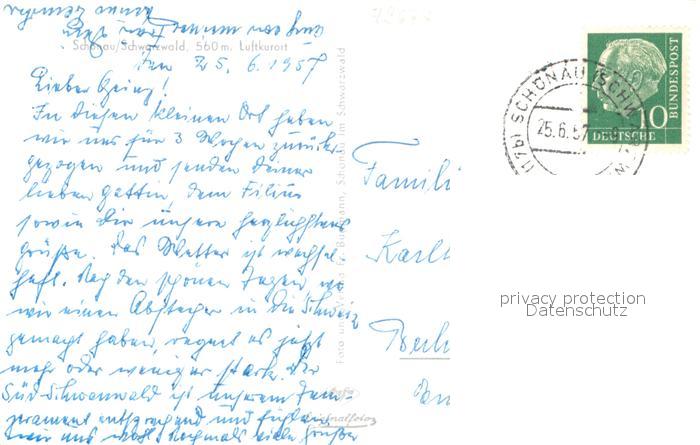 Schönau/Schwarzwald, 560 m. Luftkurort
den 25.6.1957
Lieber Heinz!
In diesem kleinen Ort haben
wir uns für 3 Wochen zurück-
gezogen und senden deiner
lieben Gattin, dem Filius
sowie Dir unsere herzlichsten
Grüße. Das Wetter ist wechsel-
haft. Nach den schönen Tagen, wo
wir einen Abstecher in die Schweiz
gemacht haben, regnet es jetzt
mehr oder weniger stark. Der
Süd-Schwarzwald ist unserem Tem-
perament entsprechend und fühlen
wir uns wohl. Nochmals viele Grüße
Foto und Verlag Schönau im Schwarzwald
Originalfoto
Famili
Karl
Berli
SCHÖNAU (SCHW
25.6.57
(17b)
10
DEUTSCHE
BUNDESPOST
privacy protection
Datenschutz